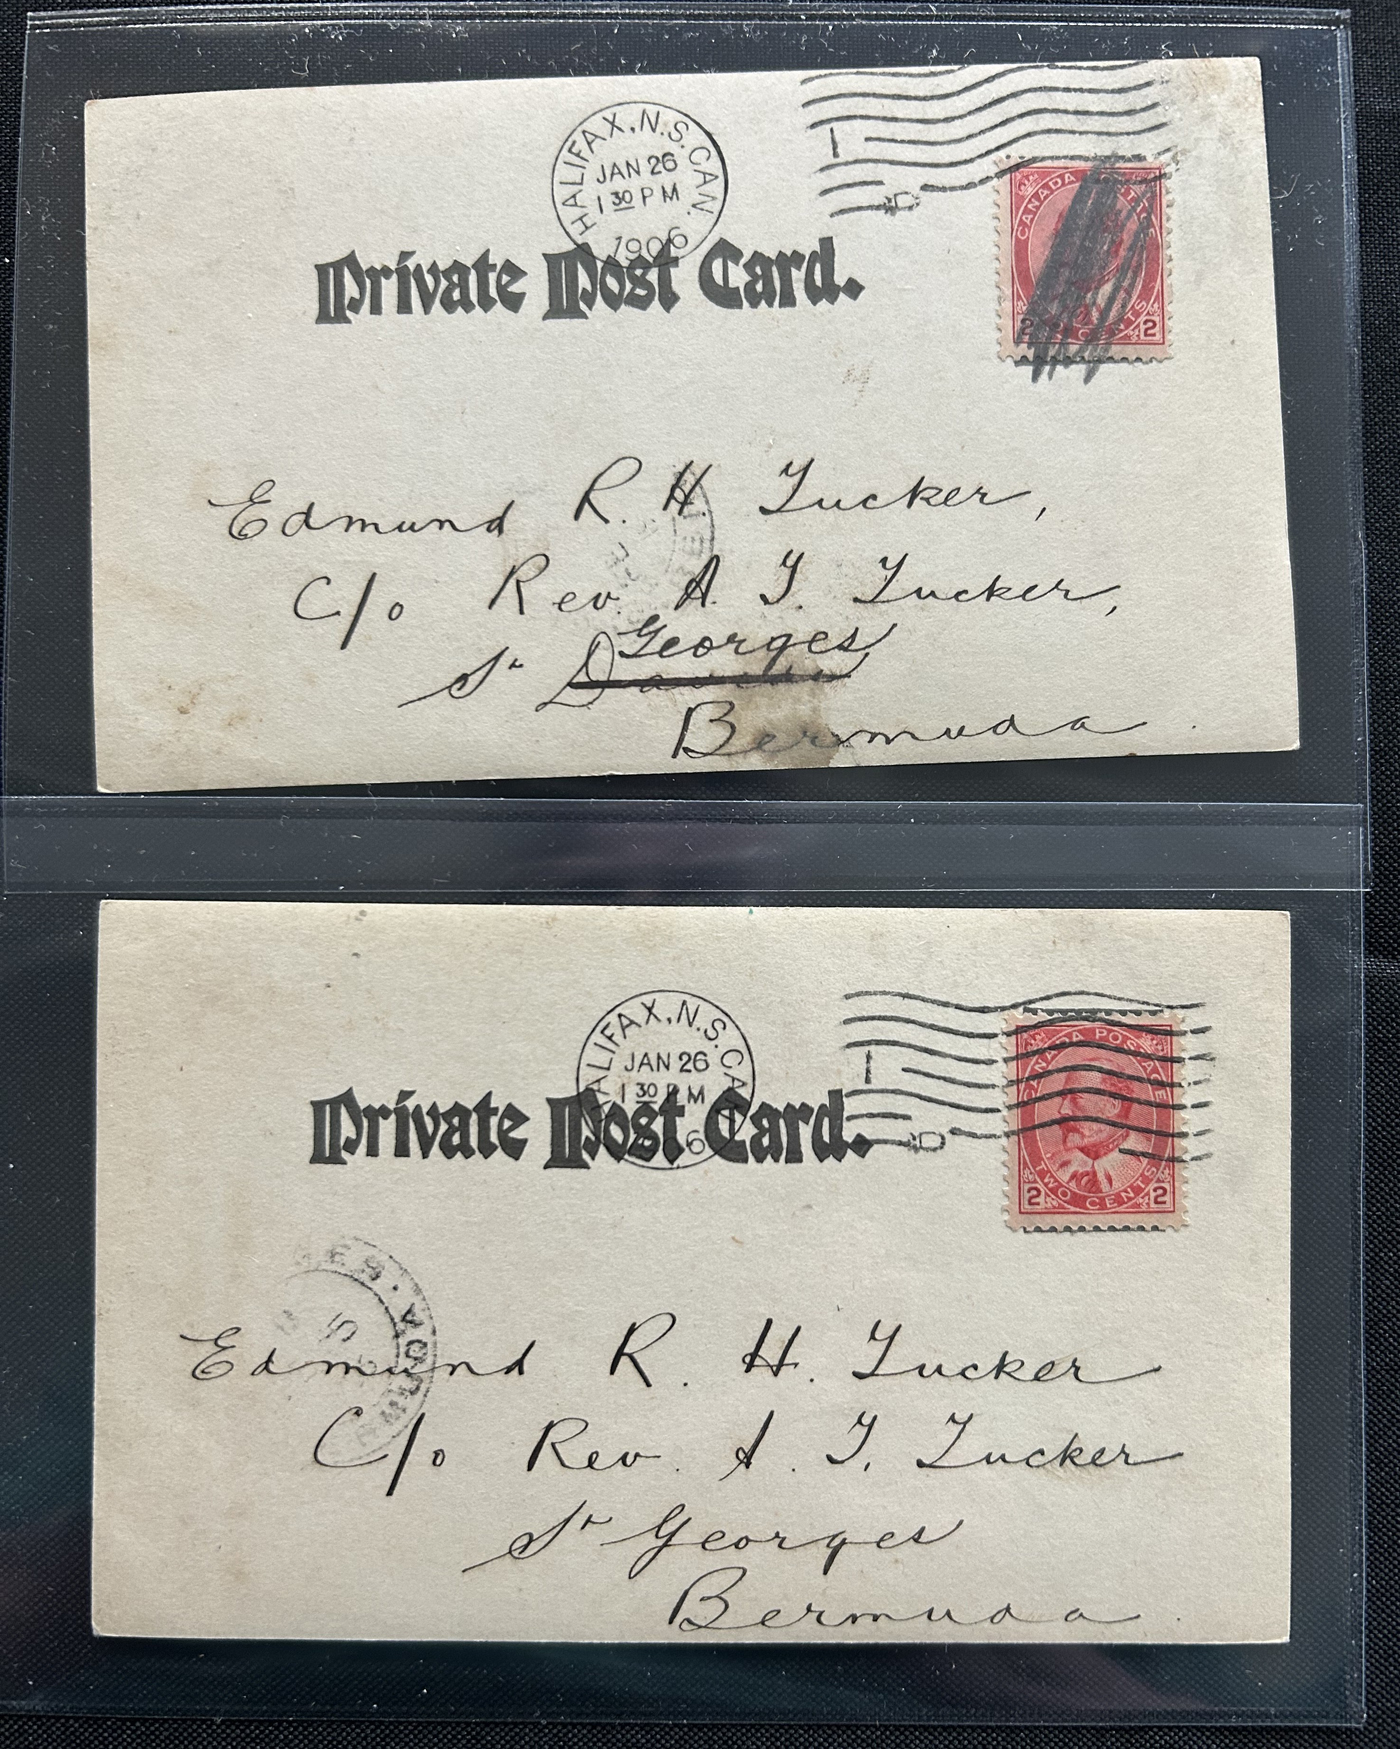 HALIFAX, N.S. CAN.
JAN 26
1 30 PM
1906
Private Post Card.
CANADA
2 CENTS 2
Edmund R. H. Tucker,
C/o Rev. A. T. Tucker,
Georges
St Davids
Bermuda.
HALIFAX, N.S. CAN
JAN 26
1 30 PM
6
Private Post Card.
CANADA POSTAGE
2 TWO CENTS 2
Edmund R. H. Tucker
C/o Rev. A. T. Tucker
St Georges
Bermuda.